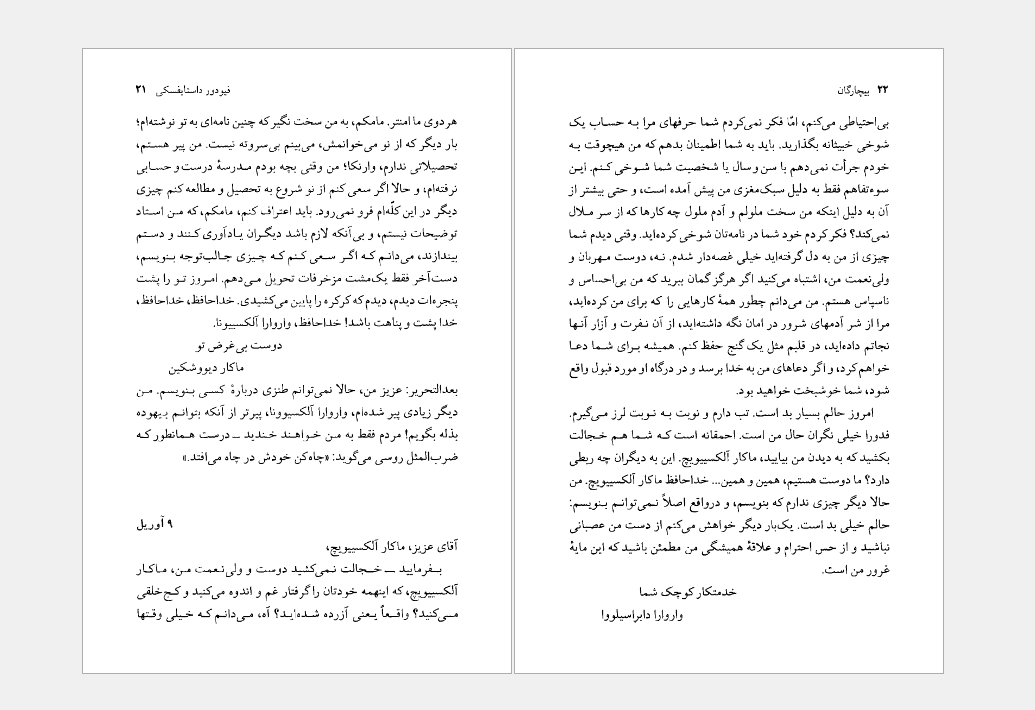 فیودور داستایفسکی ۲۱
هر دوی ما امنتر. مامکم، به من سخت نگیر که چنین نامه‌ای به تو نوشته‌ام؛
بار دیگر که از نو می‌خوانمش، می‌بینم بی‌سروته نیست. من پیر هستم،
تحصیلاتی ندارم، وارنکا؛ من وقتی بچه بودم مدرسهٔ درست و حسابی
نرفته‌ام، و حالا اگر سعی کنم از نو شروع به تحصیل و مطالعه کنم چیزی
دیگر در این کلّه‌ام فرو نمی‌رود. باید اعتراف کنم، مامکم، که من استاد
توضیحات نیستم، و بی‌آنکه لازم باشد دیگران یادآوری کنند و دستم
بیندازند، می‌دانم که اگر سعی کنم که چیزی جالب‌توجه بنویسم،
دست‌آخر فقط یک‌مشت مزخرفات تحویل می‌دهم. امروز تو را پشت
پنجره‌ات دیدم، دیدم که کرکره را پایین می‌کشیدی. خداحافظ، خداحافظ،
خدا پشت و پناهت باشد! خداحافظ، واروارا آلکسییونا.
دوست بی‌غرض تو
ماکار دیووشکین
بعدالتحریر: عزیز من، حالا نمی‌توانم طنزی دربارهٔ کسی بنویسم. من
دیگر زیادی پیر شده‌ام، واروارا آلکسیوونا، پیرتر از آنکه بتوانم بیهوده
بذله بگویم! مردم فقط به من خواهند خندید ــ درست همانطور که
ضرب‌المثل روسی می‌گوید: «چاه‌کن خودش در چاه می‌افتد.»
۹ آوریل
آقای عزیز، ماکار آلکسییویچ،
بفرمایید ــ خجالت نمی‌کشید دوست و ولی‌نعمت من، ماکار
آلکسییویچ، که اینهمه خودتان را گرفتار غم و اندوه می‌کنید و کج‌خلقی
می‌کنید؟ واقعاً یعنی آزرده شده‌اید؟ آه، می‌دانم که خیلی وقتها
۲۲ بیچارگان
بی‌احتیاطی می‌کنم، امّا فکر نمی‌کردم شما حرفهای مرا به حساب یک
شوخی خبیثانه بگذارید. باید به شما اطمینان بدهم که من هیچوقت به
خودم جرأت نمی‌دهم با سن و سال یا شخصیت شما شوخی کنم. این
سوءتفاهم فقط به دلیل سبک‌مغزی من پیش آمده است، و حتی بیشتر از
آن به دلیل اینکه من سخت ملولم و آدم ملول چه کارها که از سر ملال
نمی‌کند؟ فکر کردم خود شما در نامه‌تان شوخی کرده‌اید. وقتی دیدم شما
چیزی از من به دل گرفته‌اید خیلی غصه‌دار شدم. نه، دوست مهربان و
ولی‌نعمت من، اشتباه می‌کنید اگر هرگز گمان ببرید که من بی‌احساس و
ناسپاس هستم. من می‌دانم چطور همهٔ کارهایی را که برای من کرده‌اید،
مرا از شر آدمهای شرور در امان نگه داشته‌اید، از آن نفرت و آزار آنها
نجاتم داده‌اید، در قلبم مثل یک گنج حفظ کنم. همیشه برای شما دعا
خواهم کرد، و اگر دعاهای من به خدا برسد و در درگاه او مورد قبول واقع
شود، شما خوشبخت خواهید بود.
امروز حالم بسیار بد است. تب دارم و نوبت به نوبت لرز می‌گیرم.
فدورا خیلی نگران حال من است. احمقانه است که شما هم خجالت
بکشید که به دیدن من بیایید، ماکار آلکسییویچ. این به دیگران چه ربطی
دارد؟ ما دوست هستیم، همین و همین... خداحافظ ماکار آلکسییویچ. من
حالا دیگر چیزی ندارم که بنویسم، و درواقع اصلاً نمی‌توانم بنویسم:
حالم خیلی بد است. یک‌بار دیگر خواهش می‌کنم از دست من عصبانی
نباشید و از حس احترام و علاقهٔ همیشگی من مطمئن باشید که این مایهٔ
غرور من است.
خدمتکار کوچک شما
واروارا دابراسیلووا